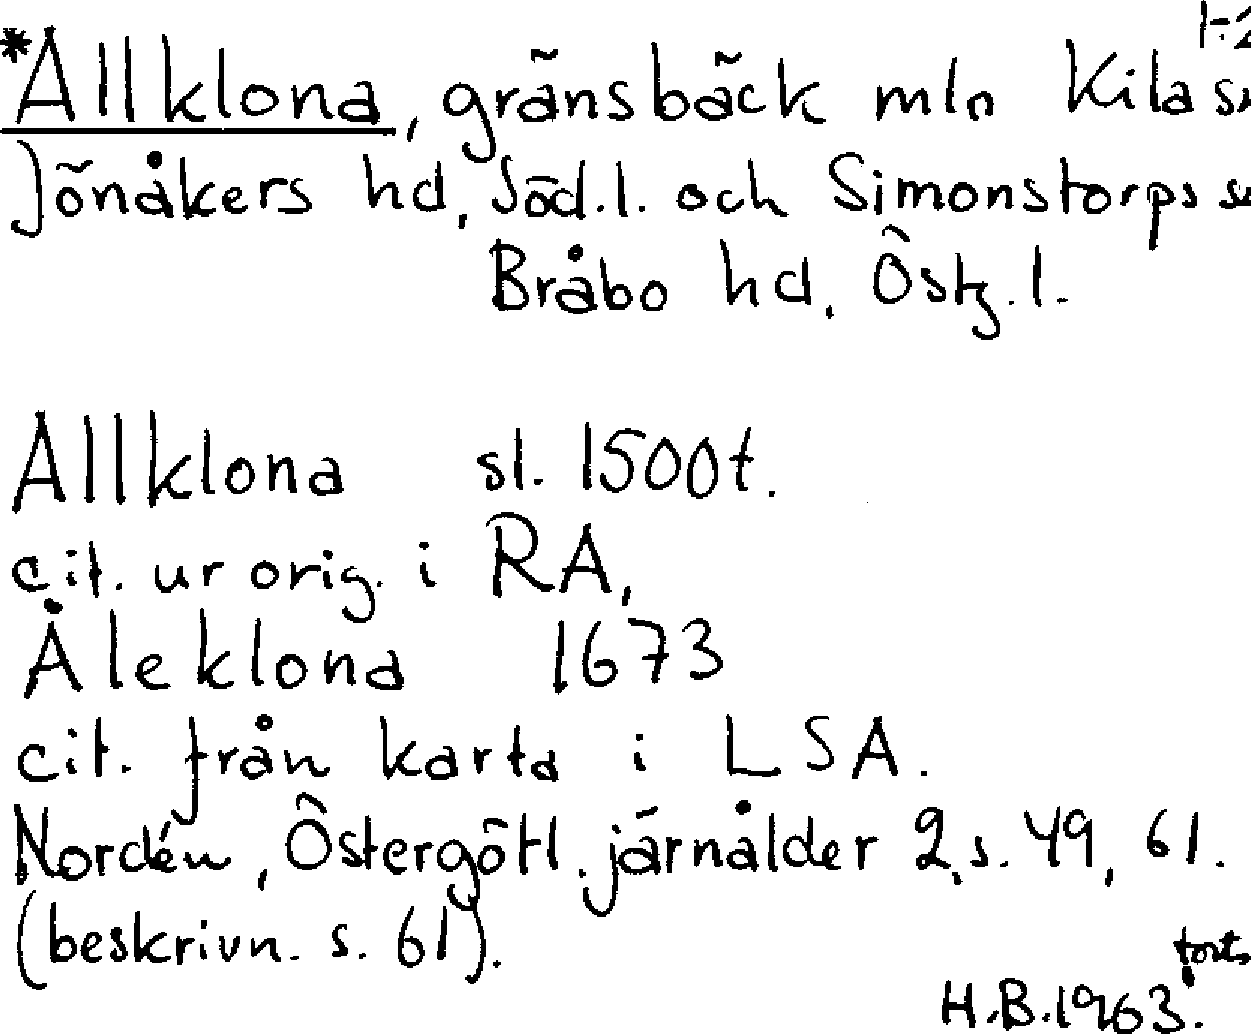 1-2
*Allklona, gränsbäck mln Kila sn
Jönåkers hd, Söd.l. och Simonstorps sn
Bråbo hd, Östg.l.
Allklona sl. 1500t.
cit. ur orig. i RA,
Åleklona 1673
cit. från karta i LSA.
Nordén, Östergötl. järnålder 2, s. 49, 61.
(beskrivn. s. 61).
forts.
H.B. 1963.